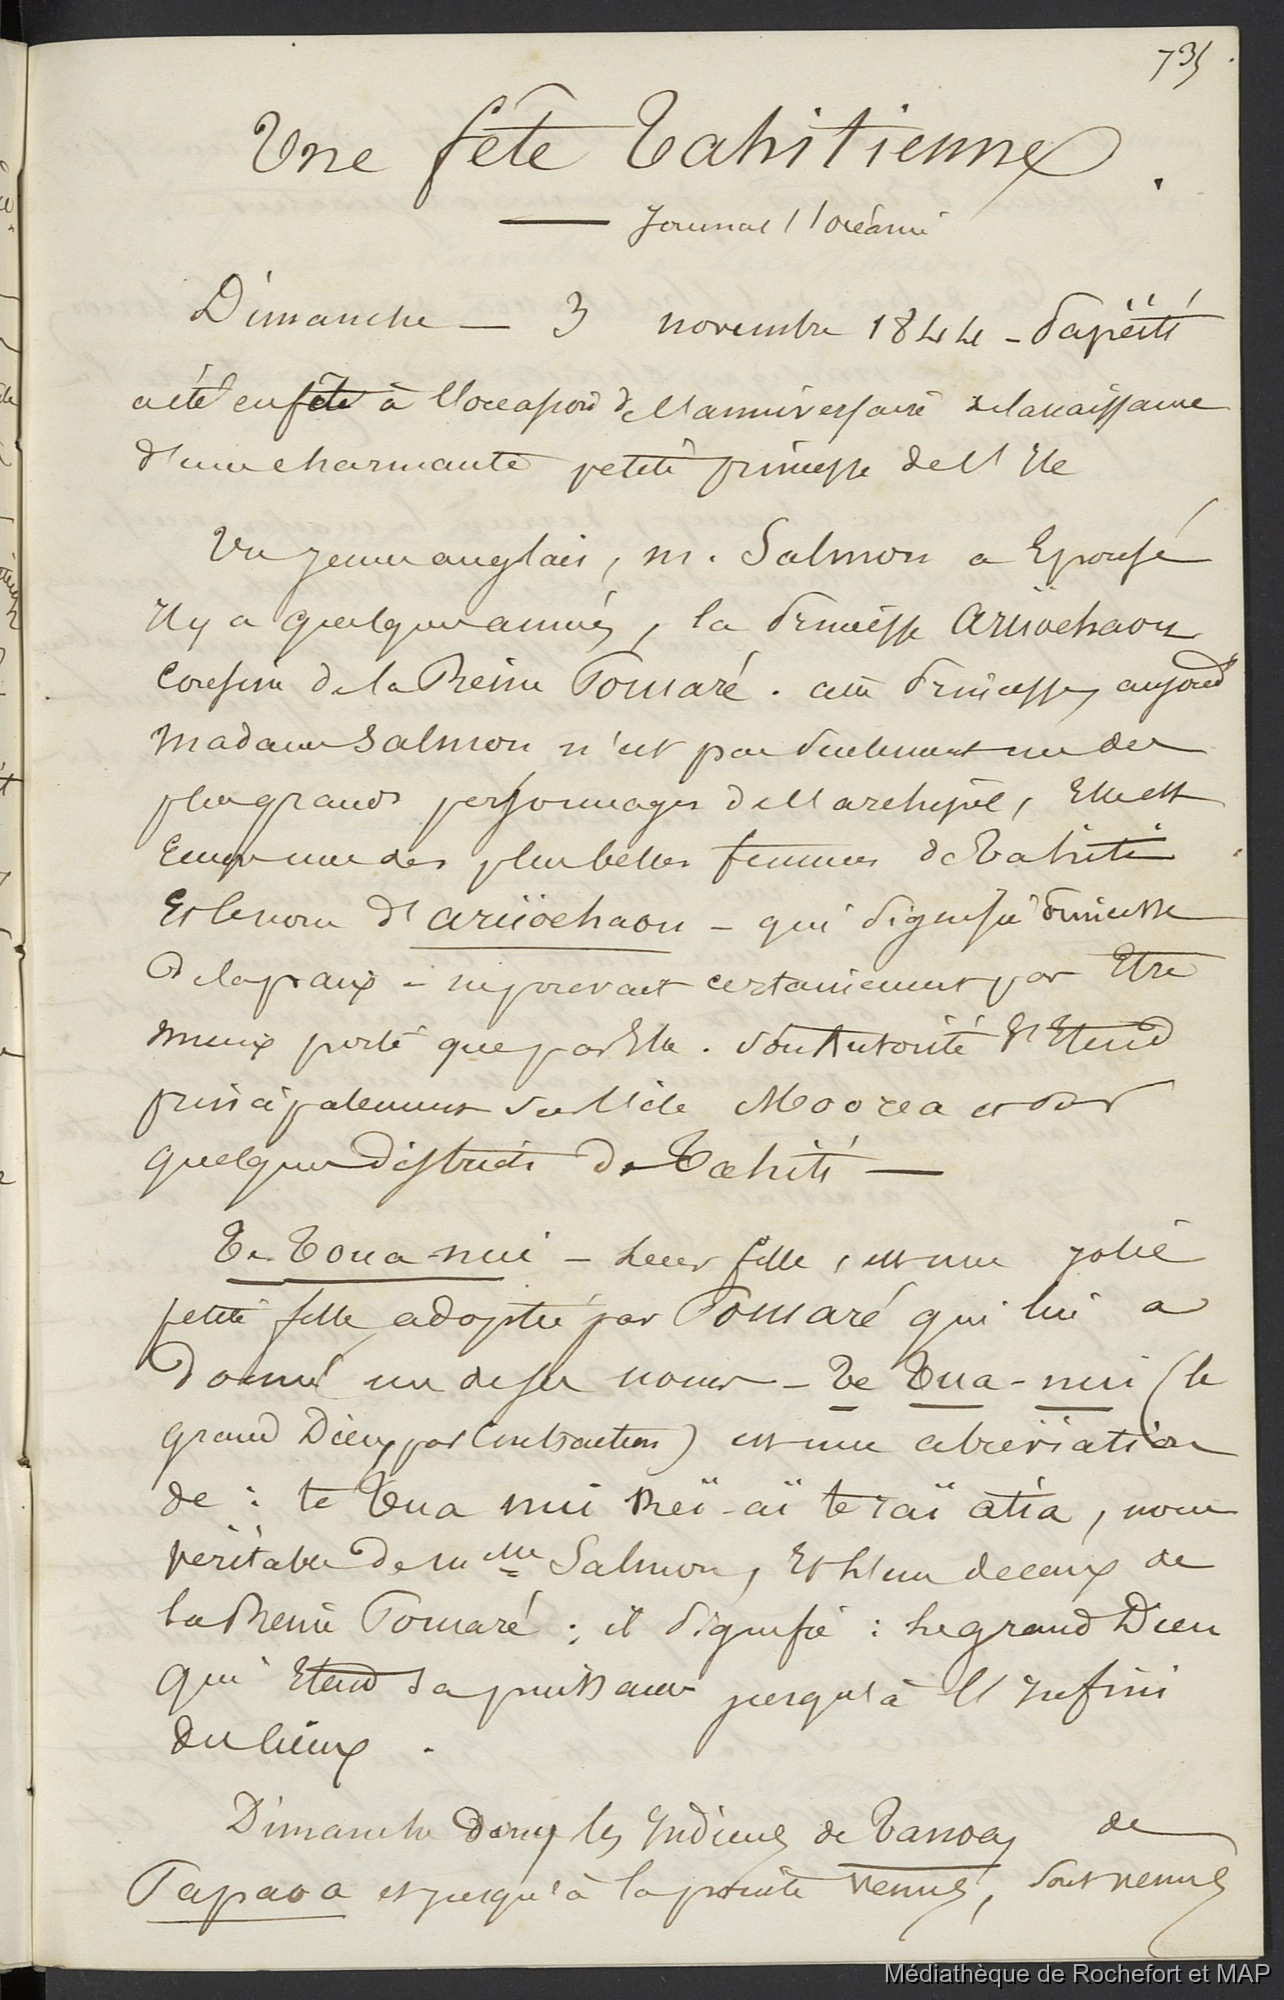 735
Une fête Tahitienne.
— Journal l'océanie
Dimanche — 3 novembre 1844 - Papéïti
a été en fête à l'occasion de l'anniversaire de la naissance
d'une charmante petite princesse de l'Ile
Un jeune anglais, m. Salmon a Epousé
Il y a quelques années, la Princesse Ariiochaou
cousine de la Reine Pomaré. cette Princesse, aujourd
Madame Salmon n'est pas seulement un des
plus grands personnages de l'archipel, Elle est
Encore une des plus belles femmes de Tahiti
Et le nom d'ariiochaou - qui signifie Princesse
De la paix - ne pouvait certainement pas Etre
mieux porté que par Elle. Son Autorité s'Etend
principalement sur l'ile Moorea et sur
quelques districts de Tahiti —
Te Toua-nui - leur fille, est une jolie
petite fille adoptée par Pomaré qui lui a
donné un de ses noms - Te Tua-nui (le
grand Dieu, par Contraction) est une abréviation
de : te Tua nui Reï-aï te raï atia, nom
véritable de Melle Salmon, Et l'un de ceux de
la Reine Pomaré ; il signifie : le grand Dieu
qui Etend sa puissance jusqu'à l'Infini
des cieux.
Dimanche donc les Indiens de Tanoa, de
Papaoa et jusqu'à la pointe Venus, sont venus
Médiathèque de Rochefort et MAP